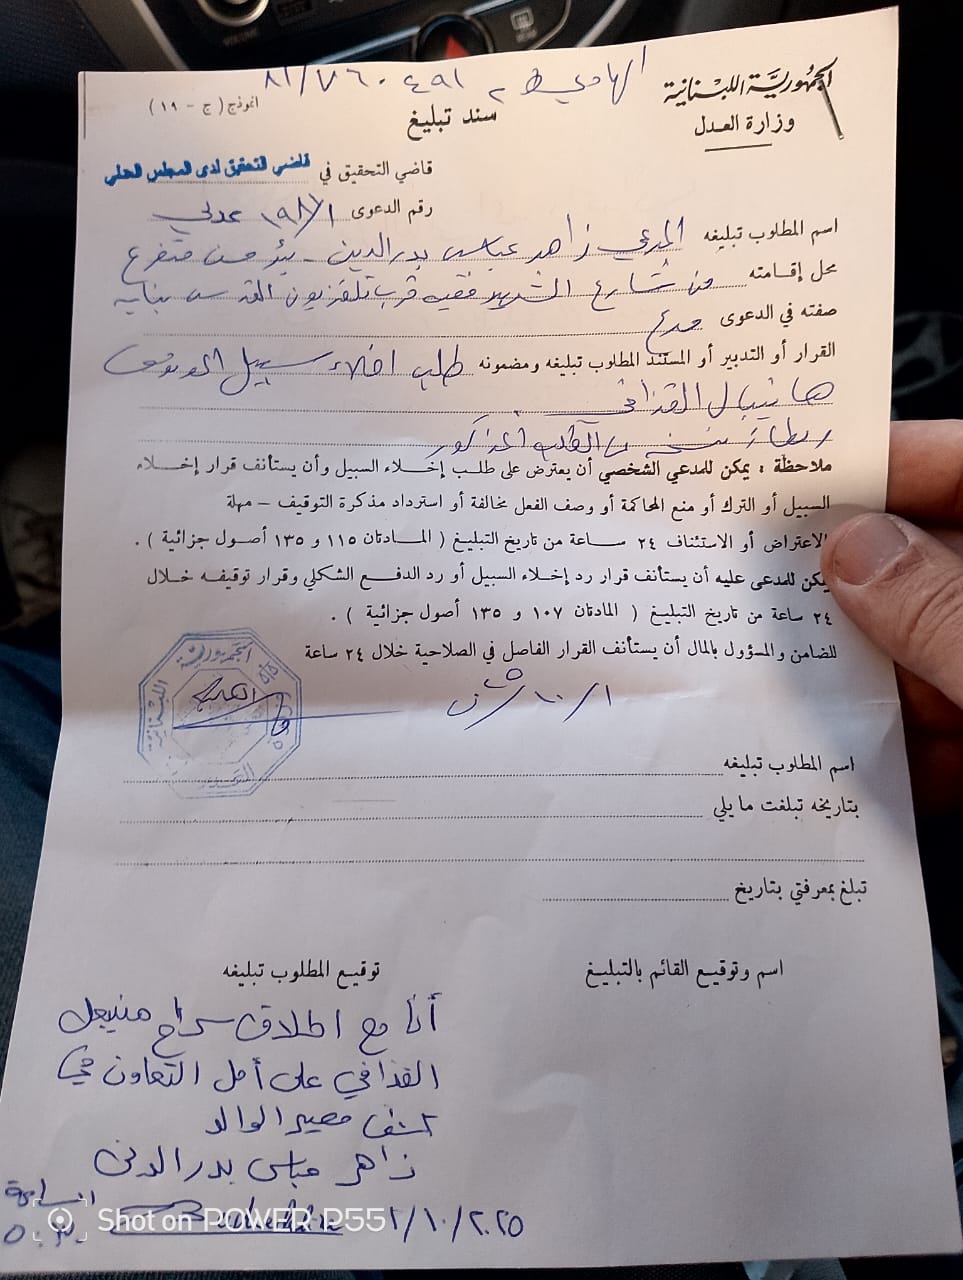 الهاوي ٨١/٧٦٠٤٩٨
الجمهورية اللبنانية
وزارة العدل
انموذج (ج - ١٩)
سند تبليغ
قاضي التحقيق في قاضي التحقيق لدى المجلس العدلي
رقم الدعوى ١/١٩٨ عدلي
اسم المطلوب تبليغه المدعي زاهر عباس بدرالدين - بئر حسن متفرع
محل إقامته من شارع الشهيد فقيه قرب تلفزيون القدس بناية
صفته في الدعوى مدع
القرار أو التدبير أو المستند المطلوب تبليغه ومضمونه طلب اخلاء سبيل الموقوف
هانيبال القذافي
ربطاً نسخة الطلب المذكور
ملاحظة : يمكن للمدعي الشخصي أن يعترض على طلب إخلاء السبيل وأن يستأنف قرار إخلاء
السبيل أو الترك أو منع المحاكمة أو وصف الفعل بمخالفة أو استرداد مذكرة التوقيف – مهلة
الاعتراض أو الاستئناف ٢٤ ساعة من تاريخ التبليغ ( المادتان ١١٥ و ١٣٥ أصول جزائية ) .
يمكن للمدعى عليه أن يستأنف قرار رد إخلاء السبيل أو رد الدفع الشكلي وقرار توقيفه خلال
٢٤ ساعة من تاريخ التبليغ ( المادتان ١٠٧ و ١٣٥ أصول جزائية ) .
للضامن والمسؤول بالمال أن يستأنف القرار الفاصل في الصلاحية خلال ٢٤ ساعة
الجمهورية اللبنانية
اسم المطلوب تبليغه
بتاريخه تبلغت ما يلي
تبلغ بمعرفتي بتاريخ
اسم وتوقيع القائم بالتبليغ
توقيع المطلوب تبليغه
أنا مع اطلاق سراح هنيبعل
القذافي على أمل التعاون في
كشف مصير الوالد
زاهر عباس بدر الدين
٢/١٠/٢٠٢٥
الساعة
Shot on POWER P55